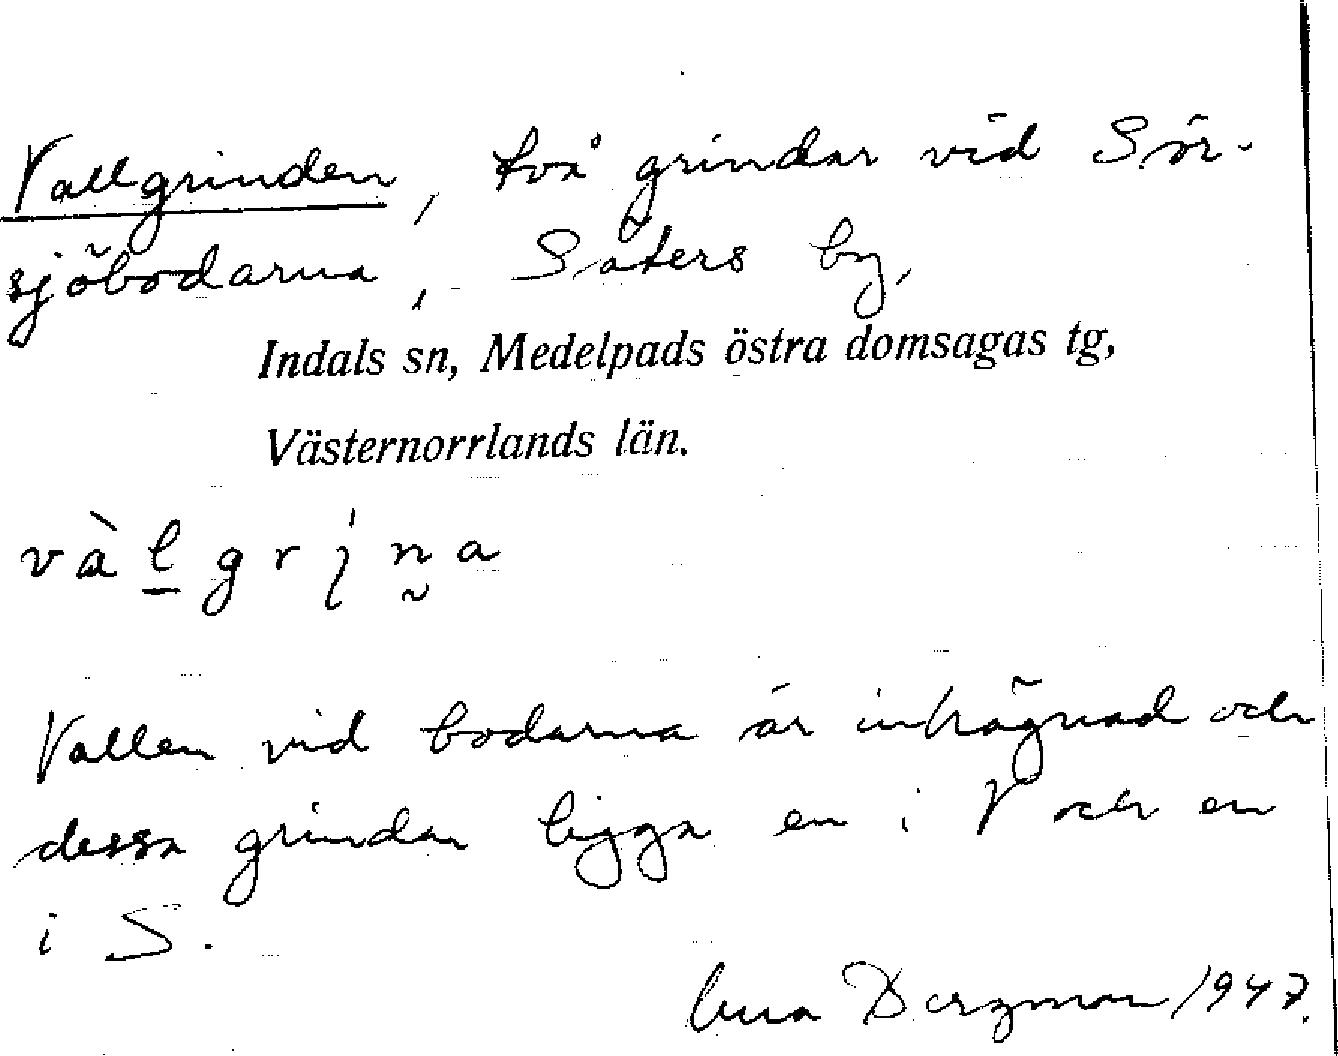 Vallgrinden, två grindar vid Sör-
sjöbodarna, Säters by,
Indals sn, Medelpads östra domsagas tg,
Västernorrlands län.
vàlgrina
Vallen vid bodarna är inhägnad och
dessa grindar ligga en i V och en
i S.
Bergman 1947.